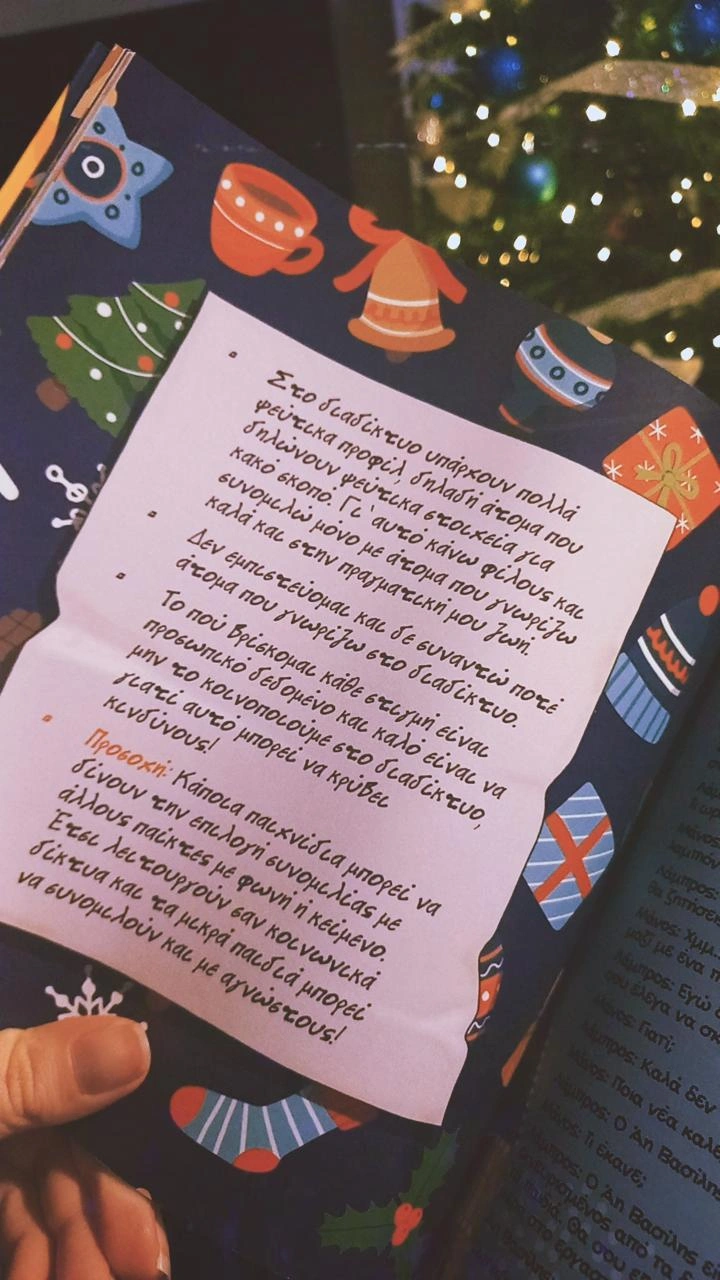 Στο διαδίκτυο υπάρχουν πολλά
ψεύτικα προφίλ, δηλαδή άτομα που
δηλώνουν ψεύτικα στοιχεία για
κακό σκοπό. Γι΄αυτό κάνω φίλους και
συνομιλώ μόνο με άτομα που γνωρίζω
καλά και στην πραγματική μου ζωή.
Δεν εμπιστεύομαι και δε συναντώ ποτέ
άτομα που γνωρίζω στο διαδίκτυο.
Το πού βρίσκομαι κάθε στιγμή είναι
προσωπικό δεδομένο και καλό είναι να
μην το κοινοποιούμε στο διαδίκτυο,
γιατί αυτό μπορεί να κρύβει
κινδύνους!
Προσοχή: Κάποια παιχνίδια μπορεί να
δίνουν την επιλογή συνομιλίας με
άλλους παίκτες με φωνή ή κείμενο.
Έτσι λειτουργούν σαν κοινωνικά
δίκτυα και τα μικρά παιδιά μπορεί
να συνομιλούν και με αγνώστους!
Λάμπρος:
θα ζητήσει
Μάνος: Χμμ...
μαζί με ένα π
Λάμπρος: Εγώ
σου έλεγα να σκ
Μάνος: Γιατί;
Λάμπρος: Καλά δεν
Μάνος: Ποια νέα καλέ
Λάμπρος: Ο Άη Βασίλης
Μάνος: Τι έκανε;
Λάμπρος: Ο Άη Βασίλης έχ
από τα
θα σου εί
στο εργασ